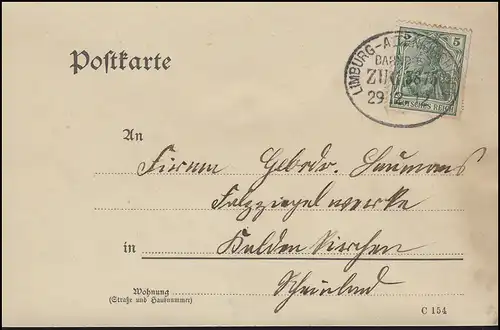 Postkarte
LIMBURG-
BAHNPOST
ZUG
29 12
5 5
DEUTSCHES REICH
An
Firma Gebrdr. Laumans
Falzziegelwerke
in Kaldenkirchen
Rheinland
Wohnung
(Straße und Hausnummer)
C 154